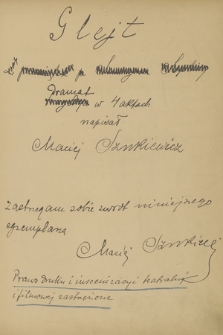 Glejt
Dramat w 4 aktach
napisał
Maciej Szukiewicz
Zastrzegam sobie zwrot niniejszego
egzemplarza
Maciej Szukiewicz
Prawo druku i inscenizacji teatralnej
i filmowej zastrzeżone